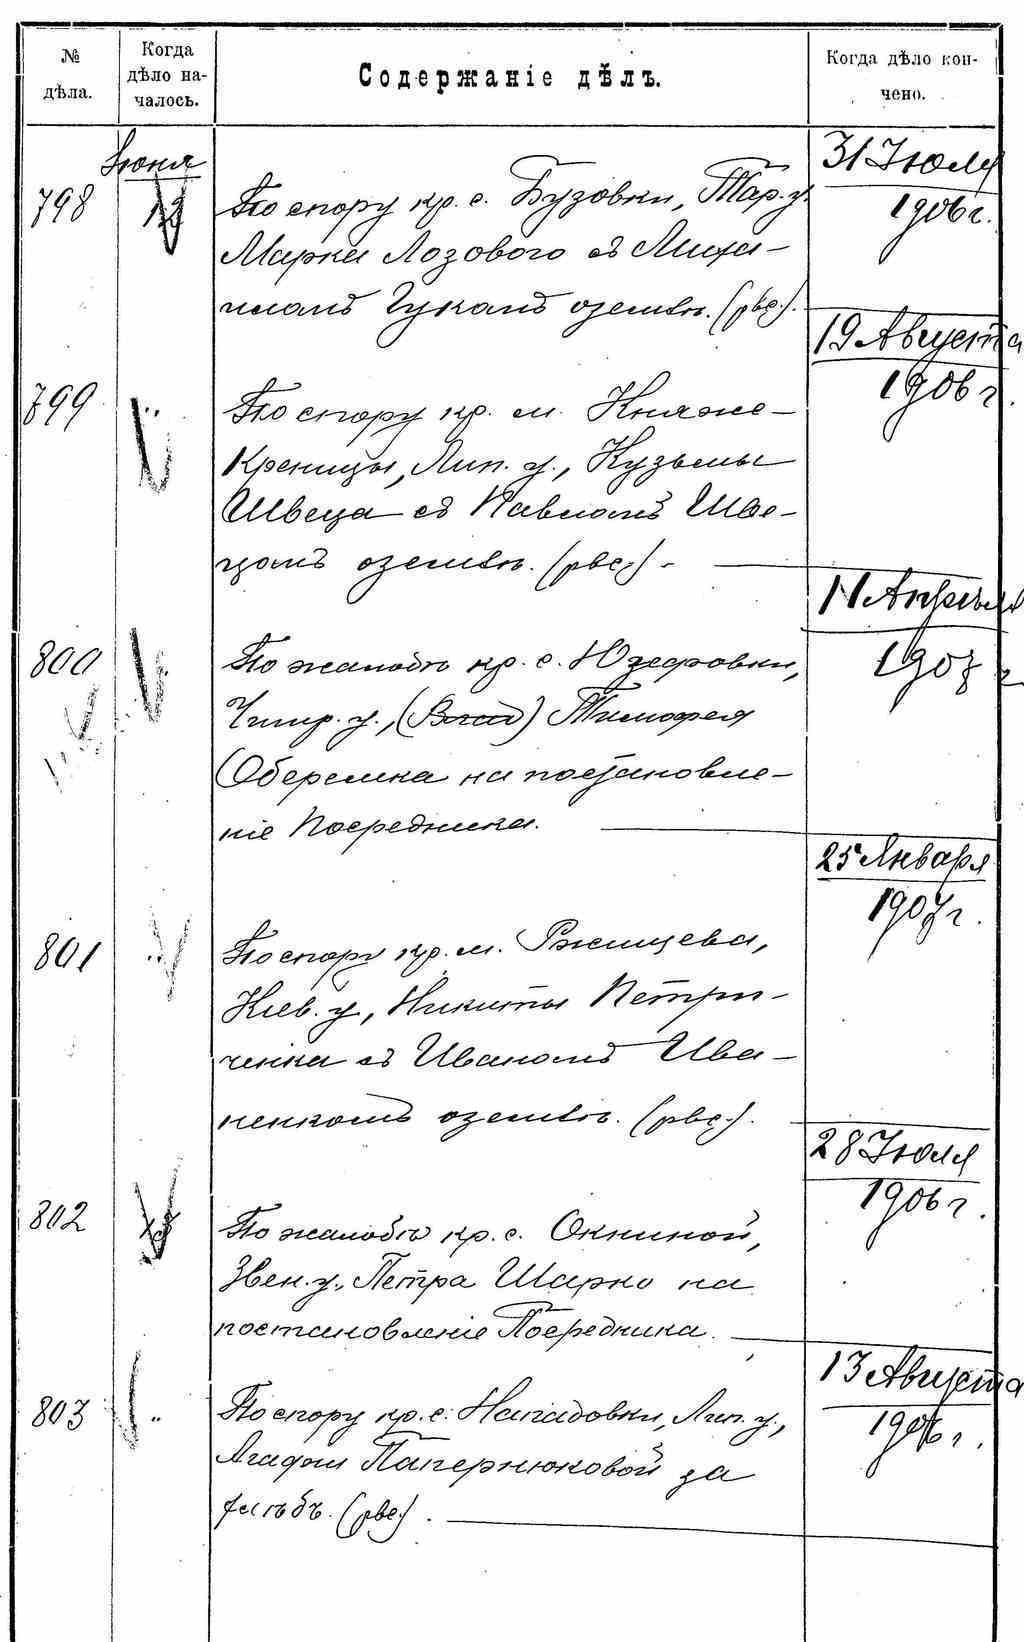 № дѣла.
Когда дѣло на-
чалось.
Содержаніе дѣлъ.
Когда дѣло кон-
чено.
Іюня
798
13
По спору кр. с. Бузовки, Тар. у.
Марка Лозового съ Миха-
иломъ Гукомъ о землѣ. (рвс.).
31 Іюля
1906 г.
799
"
По спору кр. м. Княже-
Креницы, Лип. у., Кузьмы
Швеца съ Павломъ Шве-
цомъ о землѣ. (рвс.).
19 Августа
1906 г.
800
По жалобѣ кр. с. Юзефовки,
Чигир. у., Тимофея
Оберемка на постановле-
ніе Посредника.
11 Апрѣля
1907 г
801
"
По спору кр. м. Ржищева,
Кіев. у., Никиты Петри-
ченка съ Иваномъ Ива-
ненкомъ о землѣ. (рвс.).
25 Января
1907 г.
802
По жалобѣ кр. с. Окниной,
Звен. у., Петра Шарко на
постановленіе Посредника.
28 Іюля
1906 г.
803
"
По спору кр. с. Нападовки, Лип. у.,
Агафіи Папернюковой за
хлѣбъ. (рвс.).
13 Августа
1906 г.